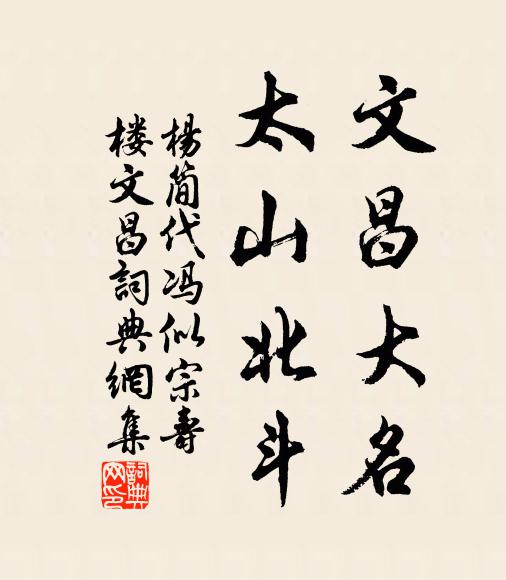 文昌大名
太山北斗
楊簡代冯似宗壽
楼文昌詞典網集
詞典网印